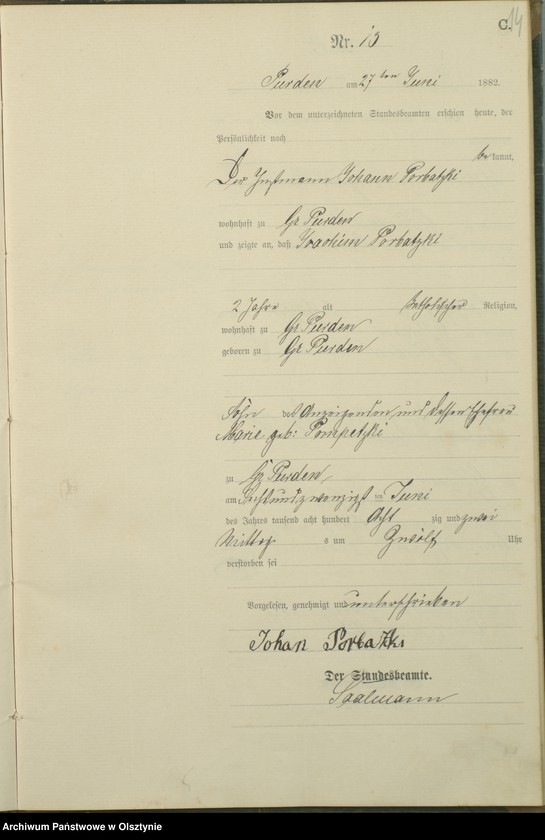 C.
14
Nr. 13
Purden am 27ten Juni 1882.
Vor dem unterzeichneten Standesbeamten erschien heute, der
Persönlichkeit nach
bekannt,
Der Instmann Johann Porbatzki
wohnhaft zu Gr Purden
und zeigte an, daß Joachim Porbatzki
2 Jahre alt katholischer Religion,
wohnhaft zu Gr Purden
geboren zu Gr Purden
Sohn des Anzeigenden, und dessen Ehefrau
Marie geb: Pompetzki
zu Gr Purden,
am Sechsundzwanzigst en Juni
des Jahres tausend acht hundert Acht zig und zwei
Mittag s um Zwölf Uhr
verstorben sei
Vorgelesen, genehmigt und unterschrieben
Johan Porbatzki
Der Standesbeamte.
Saalmann
Archiwum Państwowe w Olsztynie